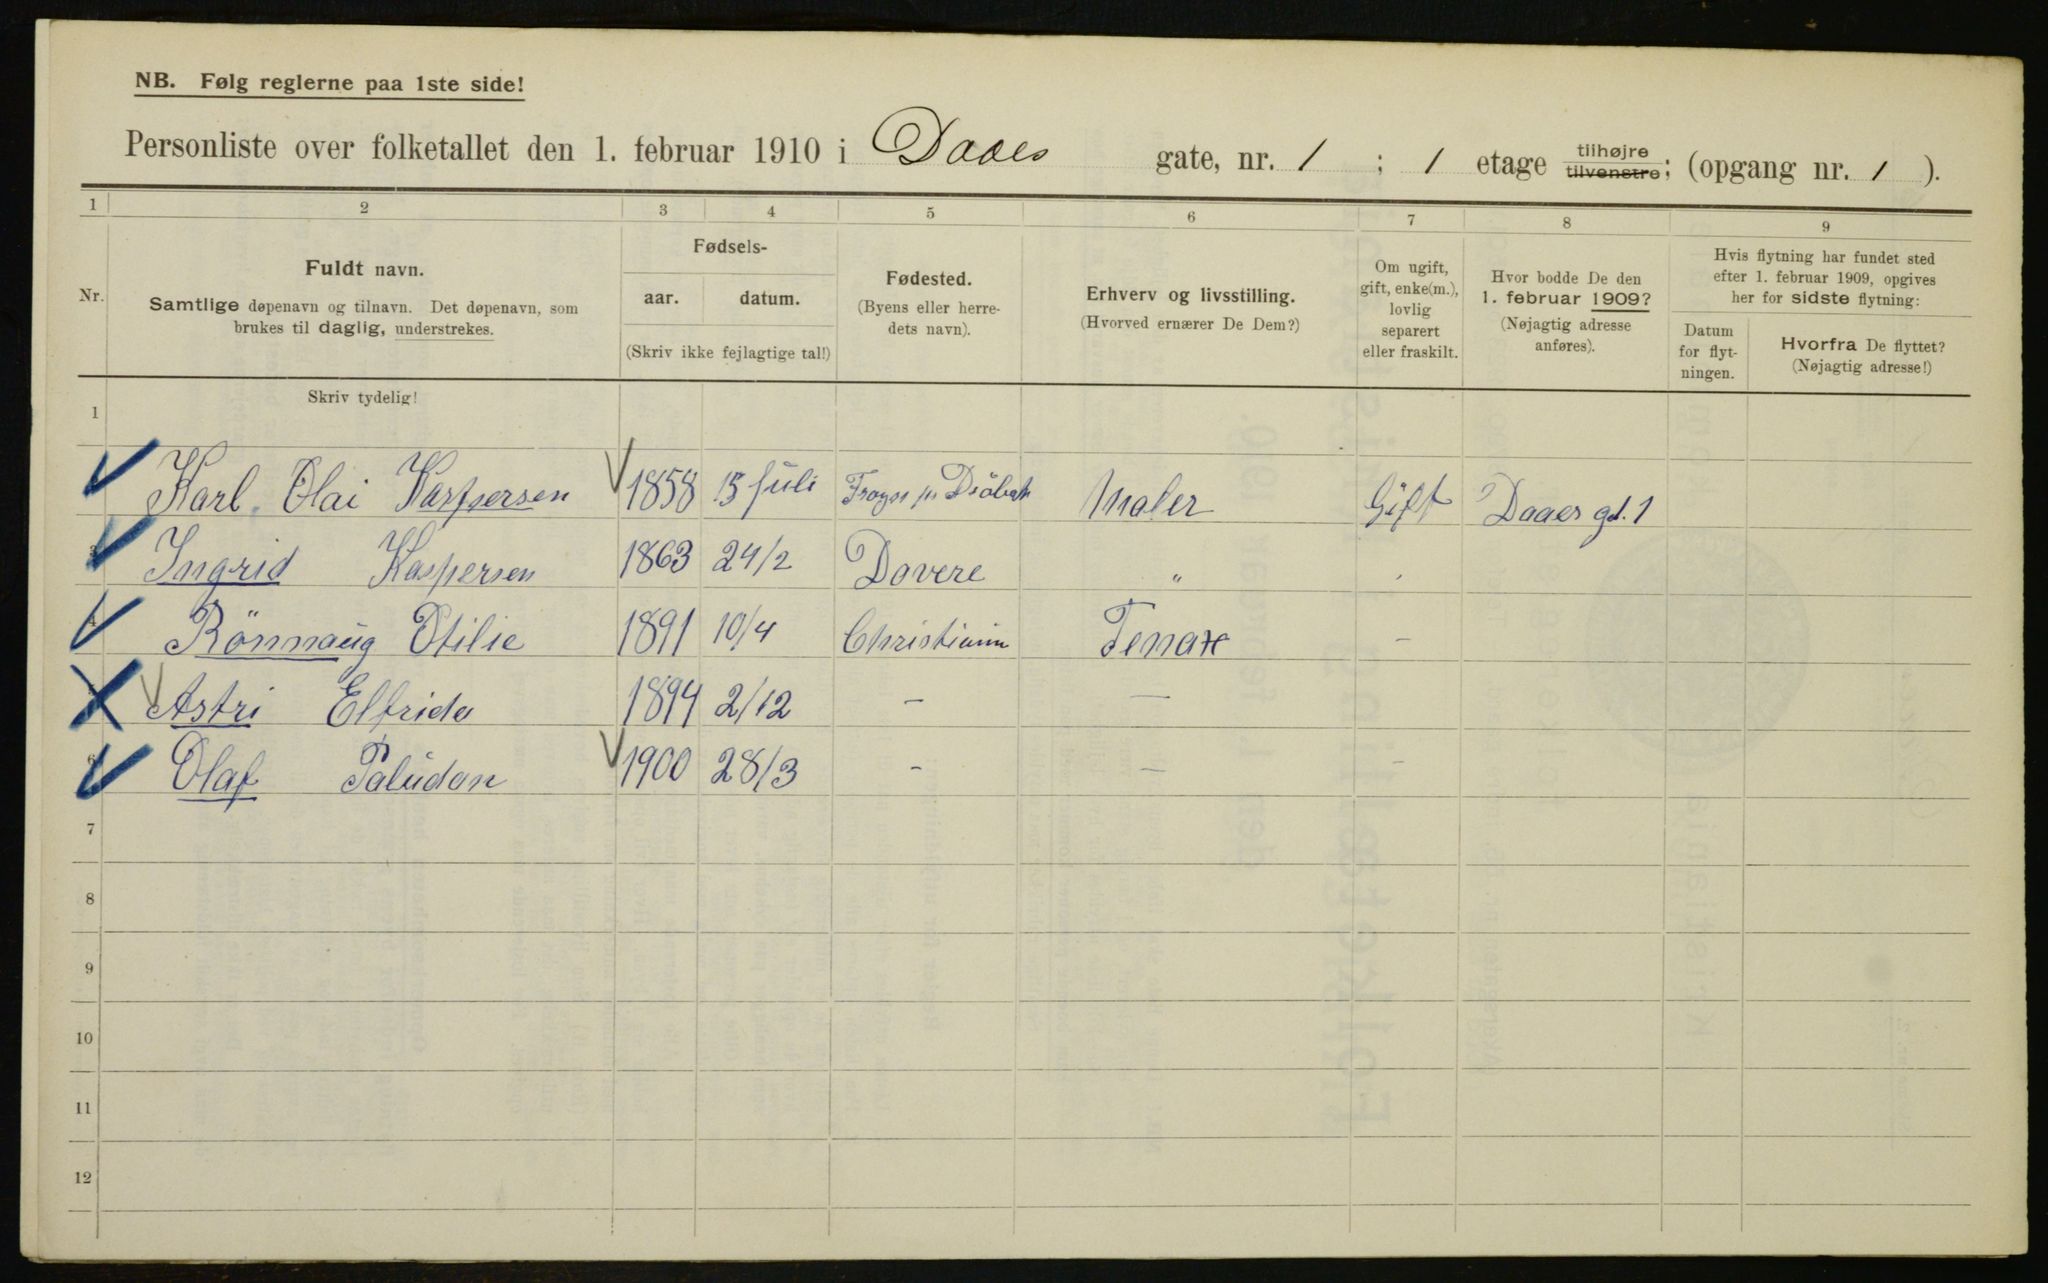 NB. Følg reglerne paa 1ste side!
Personliste over folketallet den 1. februar 1910 i Daaes gate, nr. 1 ; 1 etage tilhøjre tilvenstre; (opgang nr. 1 ).
1 2 3 4 5 6 7 8 9
Nr.
Fuldt navn.
Samtlige døpenavn og tilnavn. Det døpenavn, som
brukes til daglig, understrekes.
Fødsels-
aar. datum.
(Skriv ikke fejlagtige tal!)
Fødested.
(Byens eller herre-
dets navn).
Erhverv og livsstilling.
(Hvorved ernærer De Dem?)
Om ugift,
gift, enke(m.),
lovlig
separert
eller fraskilt.
Hvor bodde De den
1. februar 1909?
(Nøjagtig adresse
anføres).
Hvis flytning har fundet sted
efter 1. februar 1909, opgives
her for sidste flytning:
Datum
for flyt-
ningen.
Hvorfra De flyttet?
(Nøjagtig adresse!)
Skriv tydelig!
1
Karl Olai Kaspersen 1858 15 juli Maler Gift Daaes gd. 1
3 Ingrid Kaspersen 1863 24/2 Dovere "
4 Rönnaug Otilie 1891 10/4 Tenax -
5 Astri Elfrida 1894 2/12 - —
6 Olaf Paludan 1900 28/3 - — -
7
8
9
10
11
12